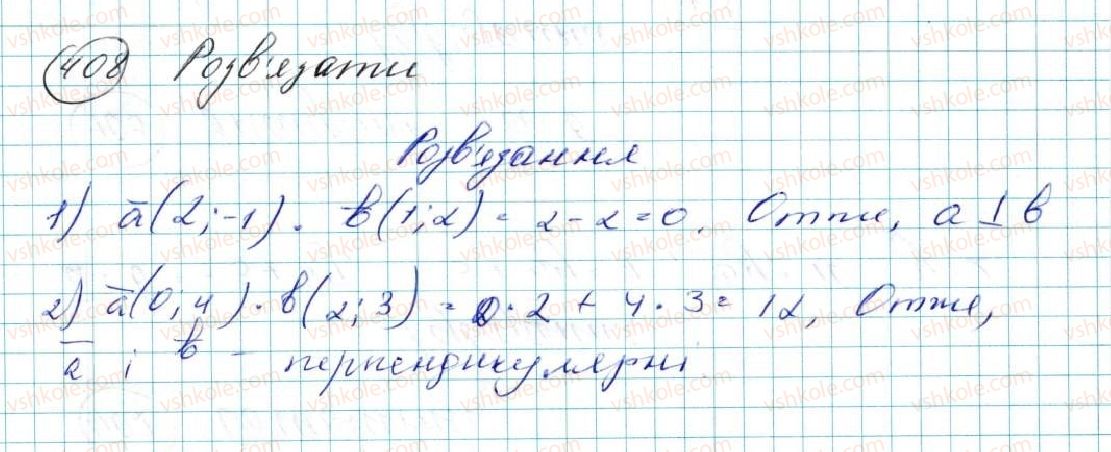 408 Розв'язати
Розв'язання
1) a̅(2;-1) · b̅(1;2) = 2-2=0. Отже, a ⊥ b
2) a̅(0;4) · b(2;3) = 0·2 + 4·3 = 12, Отже,
a̅ і b̅ - перпендикулярні